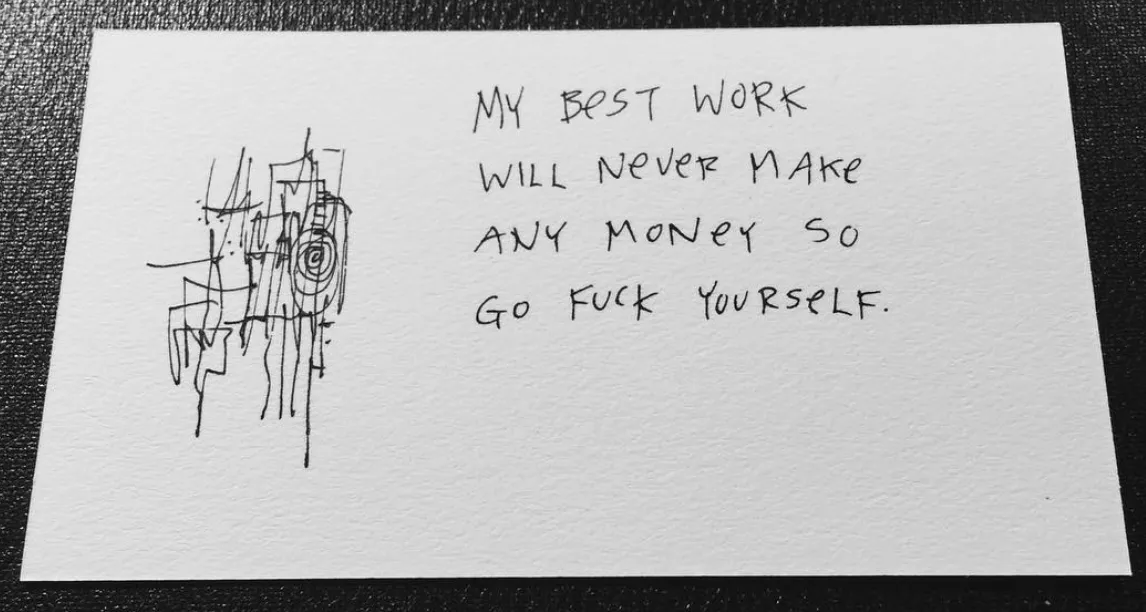 MY BEST WORK
WILL NEVER MAKE
ANY MONEY SO
GO FUCK YOURSELF.